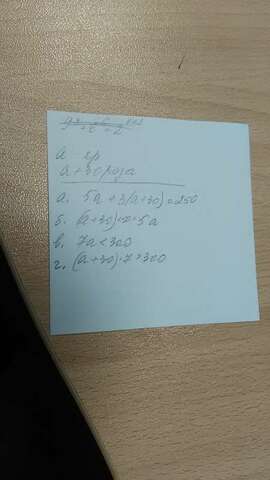 а гр
а+30 роза
а. 5а + 3(а+30) = 250
б. (а+30)·2=5а
в. 7а<300
г. (а+30)·7>300